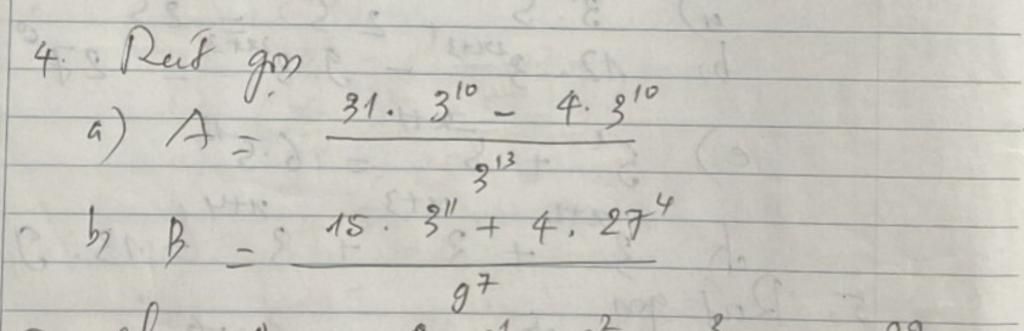 4. Rút gọn
a) A = (31 . 3^10 - 4 . 3^10) / 3^13
b, B = (15 . 3^11 + 4 . 27^4) / 9^7